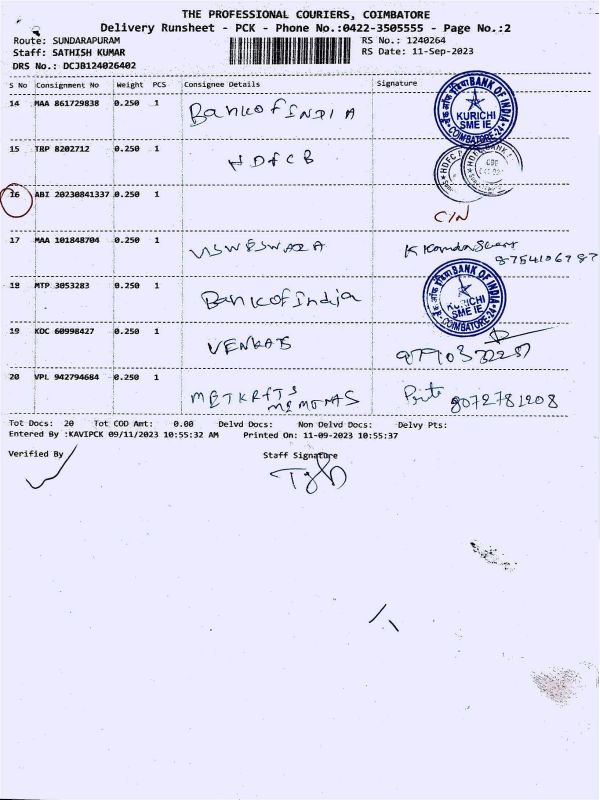 THE PROFESSIONAL COURIERS, COIMBATORE
Delivery Runsheet - PCK - Phone No.:0422-3505555 - Page No.:2
Route: SUNDARAPURAM RS No.: 1240264
Staff: SATHISH KUMAR RS Date: 11-Sep-2023
DRS No.: DCJB124026402
S No Consignment No Weight PCS Consignee Details Signature
14 MAA 861729838 0.250 1 Bank of INDIA
BANK OF INDIA
KURICHI
SME IE
COIMBATORE-24
15 TRP 8202712 0.250 1 HDFCB
HDFC
16 ABI 20230841337 0.250 1
C/N
17 MAA 101848704 0.250 1 VISWESWARA K
18 MTP 3053283 0.250 1 Bank of India
BANK OF INDIA
KURICHI
SME IE
COIMBATORE-24
19 KDC 60998427 0.250 1
20 VPL 942794684 0.250 1 9072781208
Tot Docs: 20 Tot COD Amt: 0.00 Delvd Docs: Non Delvd Docs: Delvy Pts:
Entered By :KAVIPCK 09/11/2023 10:55:32 AM Printed On: 11-09-2023 10:55:37
Verified By Staff Signature